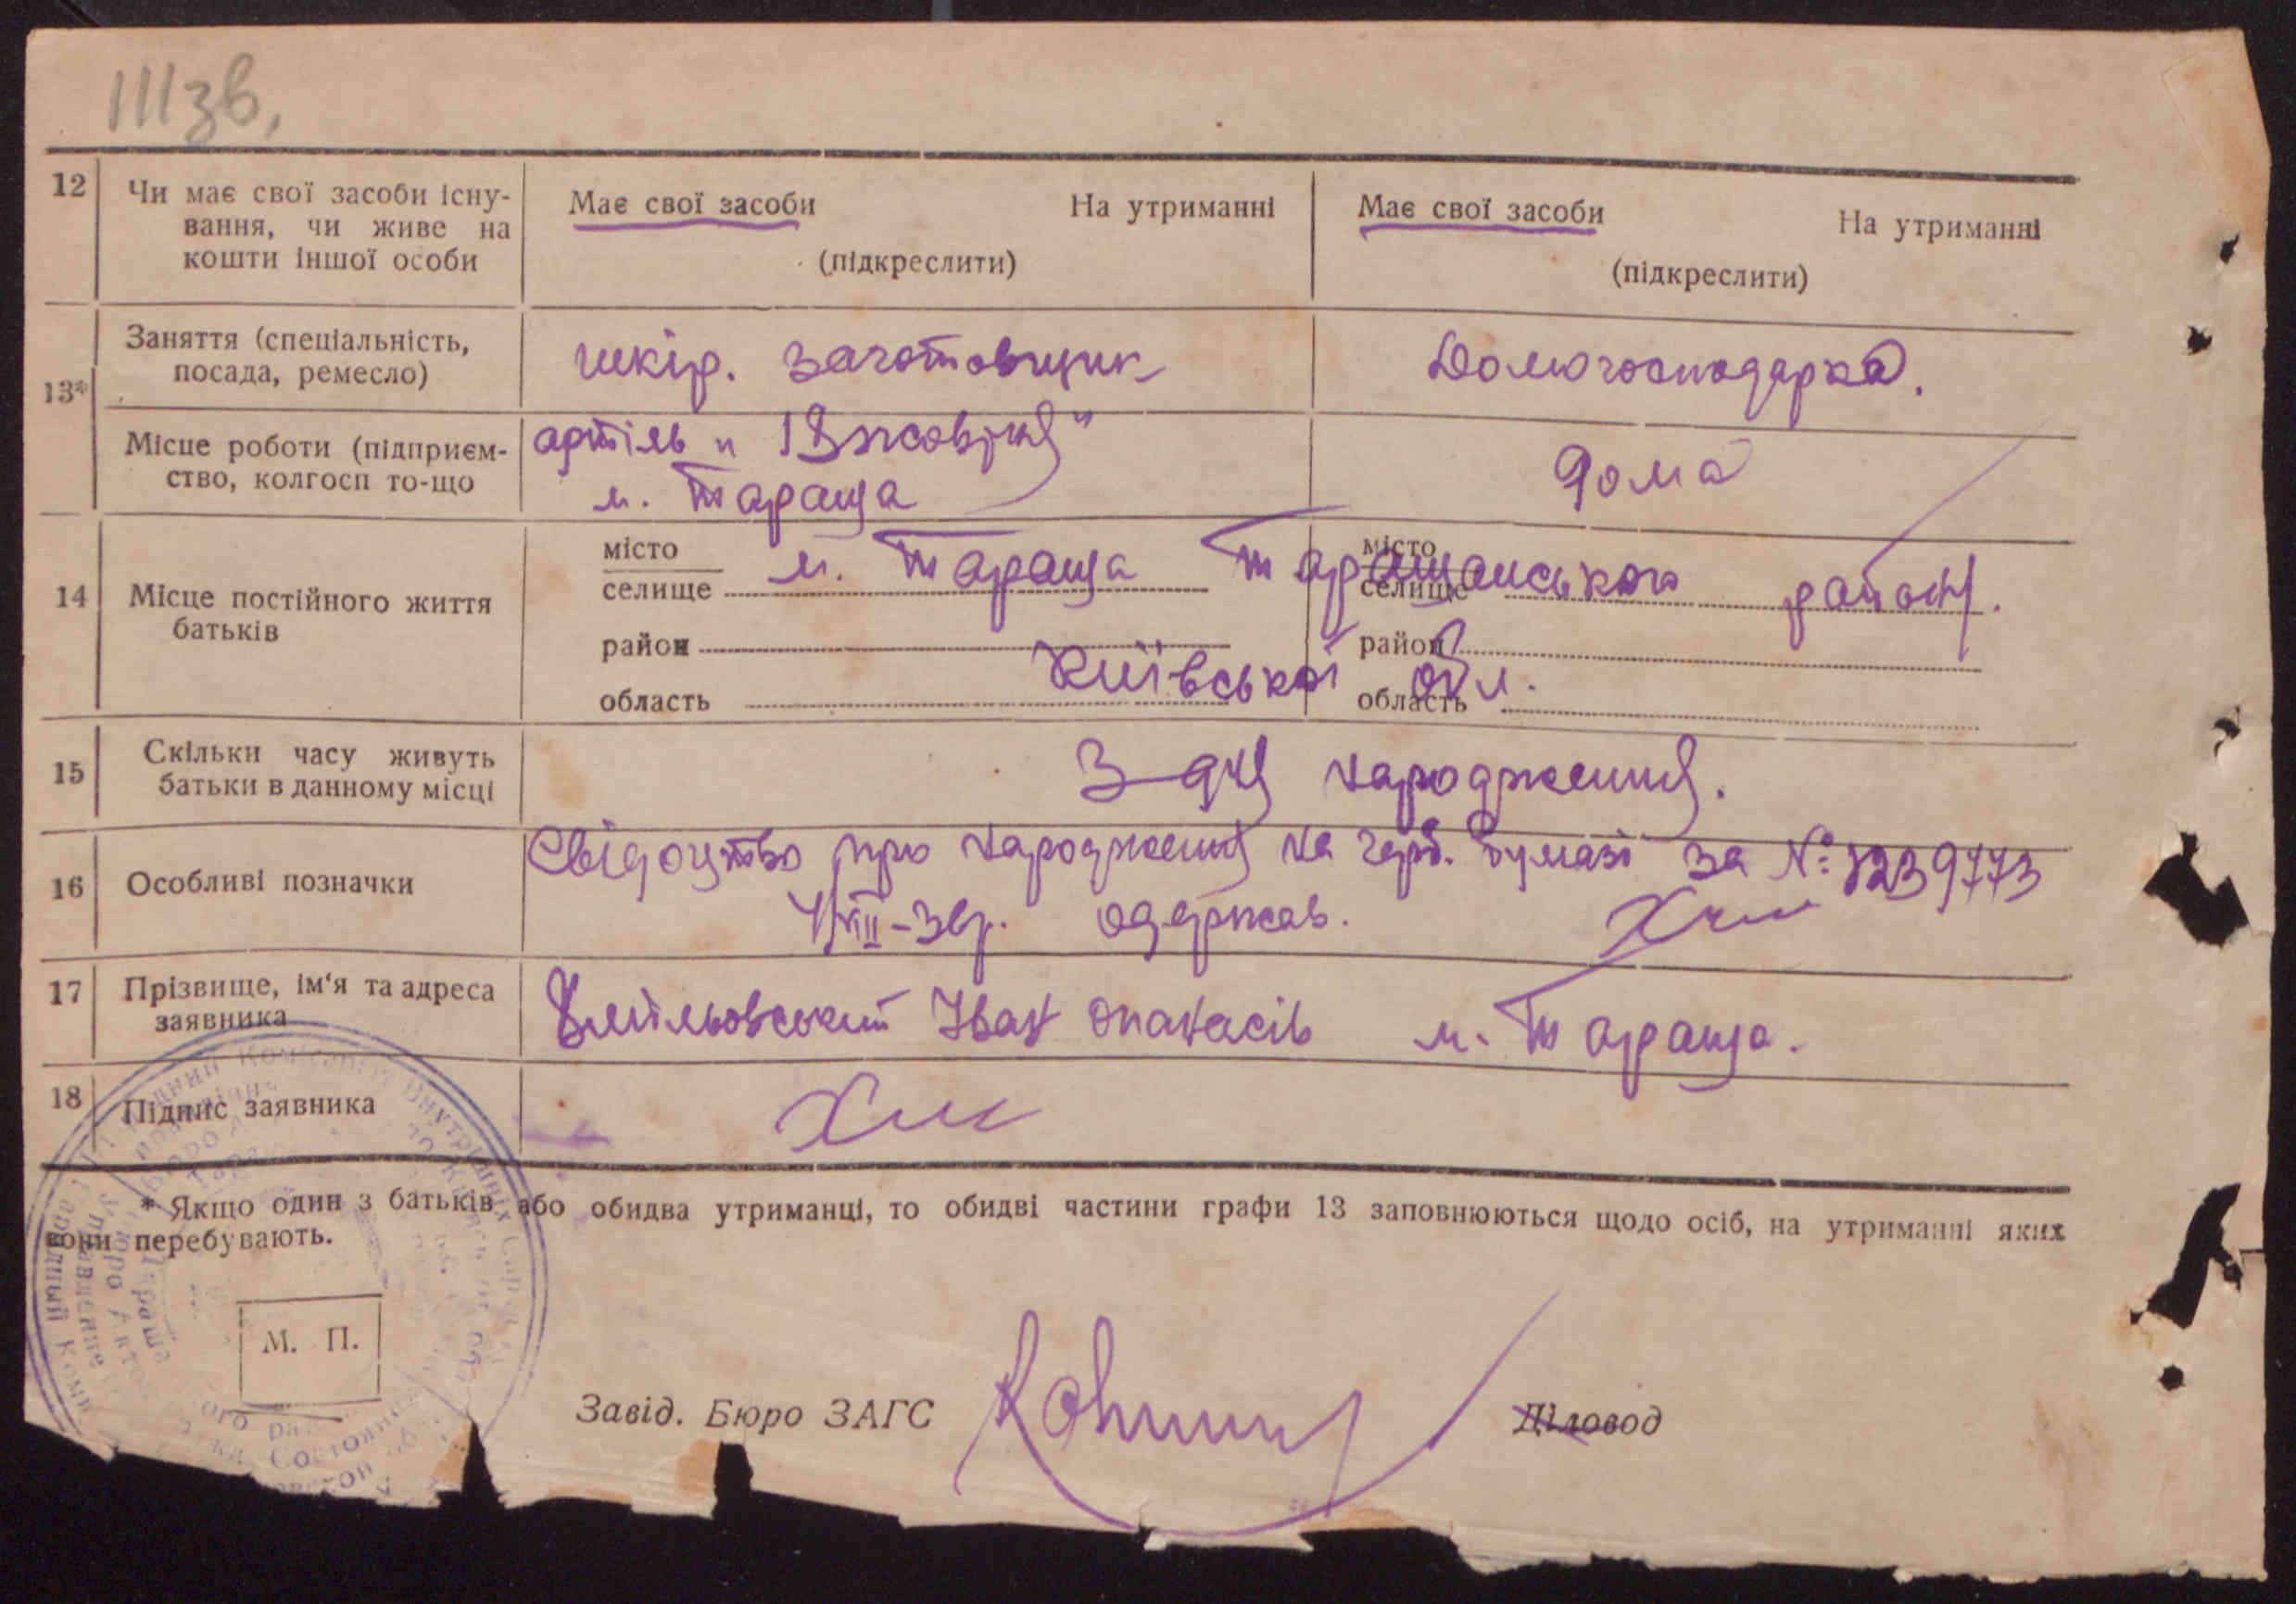 111зв.
12 Чи має свої засоби існу-
вання, чи живе на
кошти іншої особи
Має свої засоби На утриманні
(підкреслити)
Має свої засоби На утриманні
(підкреслити)
13* Заняття (спеціальність,
посада, ремесло)
шкір. заготовщик
Домогосподарка.
Місце роботи (підприєм-
ство, колгосп то-що
артіль "Жовтня"
м. Тараща
дома
14 Місце постійного життя
батьків
місто
селище м. Тараща Таращанського району.
район
область Київської обл.
місто
селище
район
область
15 Скільки часу живуть
батьки в данному місці
З дня народження.
16 Особливі позначки
Свідоцтво про народження на герб. бумазі за №: 1239773
одержав.
17 Прізвище, ім'я та адреса
заявника
Іван Опанасів м. Тараща.
18 Підпис заявника
* Якщо один з батьків або обидва утриманці, то обидві частини графи 13 заповнюються щодо осіб, на утриманні яких
вони перебувають.
М. П.
Завід. Бюро ЗАГС
Діловод